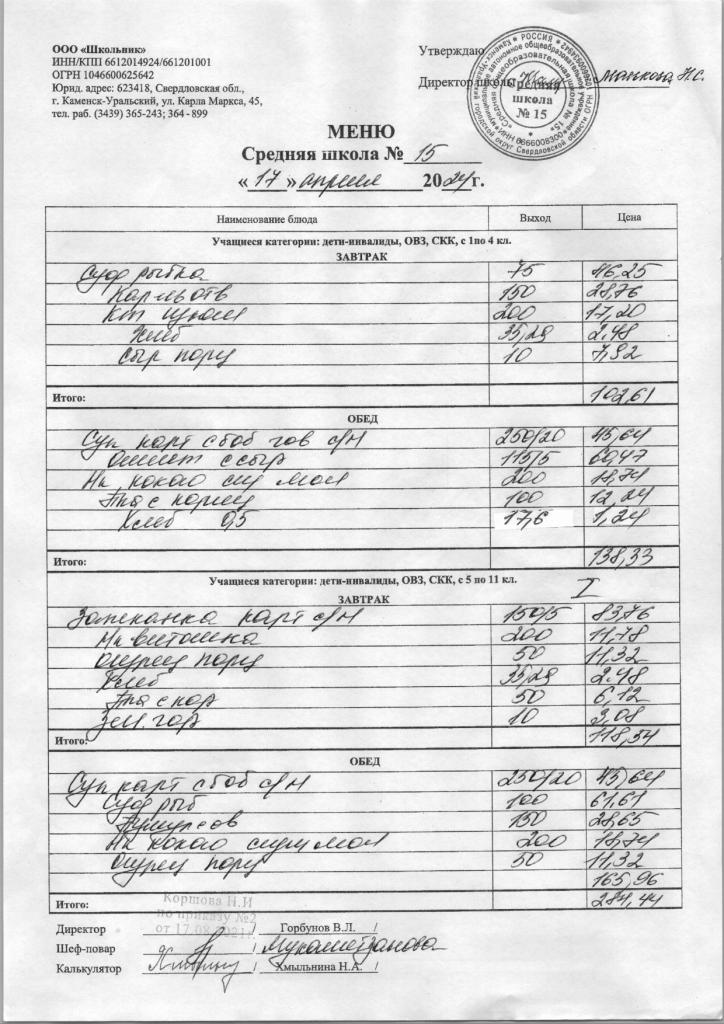 ООО «Школьник»
ИНН/КПП 6612014924/661201001
ОГРН 1046600625642
Юрид. адрес: 623418, Свердловская обл.,
г. Каменск-Уральский, ул. Карла Маркса, 45,
тел. раб. (3439) 365-243; 364 - 899
Утверждаю
Директор школы Манкова Н.С.
Средняя
школа
№ 15
МЕНЮ
Средняя школа № 15
« 17 » апреля 2024 г.
Наименование блюда Выход Цена
Учащиеся категории: дети-инвалиды, ОВЗ, СКК, с 1по 4 кл.
ЗАВТРАК
Суф рыбка 75 46,25
Кар-ль отв 150 28,76
200 17,20
Хлеб 35,29 2,48
Сыр порц 10 7,92
Итого: 102,61
ОБЕД
Суп карт с боб гов с/Н 250/20 45,64
Омлет с сыр 115/5 60,47
Нк какао сгущ мол 200 18,74
100 12,24
Хлеб 0,5 17,6 1,24
Итого: 138,33
Учащиеся категории: дети-инвалиды, ОВЗ, СКК, с 5 по 11 кл. I
ЗАВТРАК
Запеканка карт с/Н 150/5 83,76
Нк витошка 200 11,78
Огурец порц 50 11,32
Хлеб 35,29 2,48
50 6,12
Зел. гор 10 3,08
Итого: 118,54
ОБЕД
Суп карт с боб с/Н 250/20 45,64
Суф рыб 100 61,61
150 28,65
Нк какао сгущ мол 200 18,74
Огурец порц 50 11,32
165,96
Итого: 284,44
Коршова Н.И
по приказу №2
от 17.08.2021г.
Директор / Горбунов В.Л. /
Шеф-повар / Мухаметзанова
Калькулятор / Хмыльнина Н.А. /